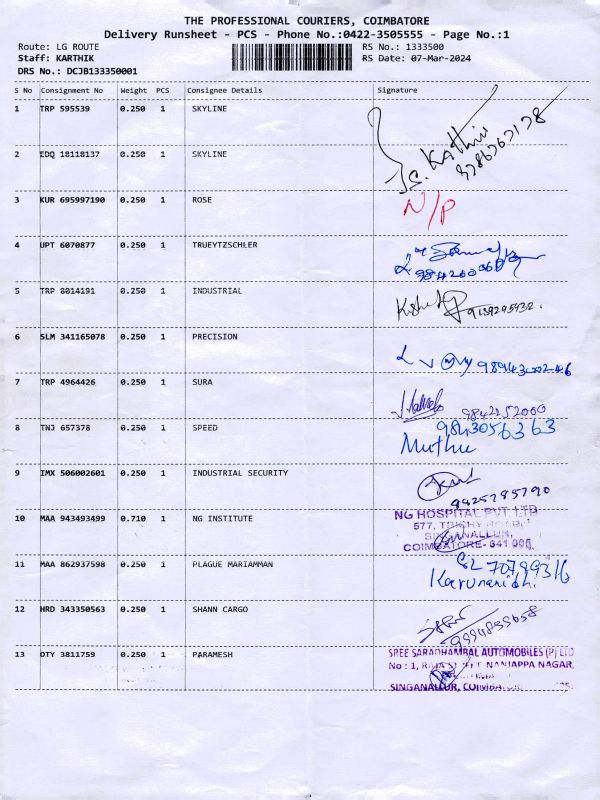 THE PROFESSIONAL COURIERS, COIMBATORE
Delivery Runsheet - PCS - Phone No.:0422-3505555 - Page No.:1
Route: LG ROUTE RS No.: 1333500
Staff: KARTHIK RS Date: 07-Mar-2024
DRS No.: DCJB133350001
S No Consignment No Weight PCS Consignee Details Signature
1 TRP 595539 0.250 1 SKYLINE
2 EDQ 18118137 0.250 1 SKYLINE
3 KUR 695997190 0.250 1 ROSE N/P
4 UPT 6070877 0.250 1 TRUEYTZSCHLER
5 TRP 8014191 0.250 1 INDUSTRIAL
6 SLM 341165078 0.250 1 PRECISION
7 TRP 4964426 0.250 1 SURA
8 TNJ 657378 0.250 1 SPEED 9843056363
Muthu
9 IMX 506002601 0.250 1 INDUSTRIAL SECURITY
9425785790
10 MAA 943493499 0.710 1 NG INSTITUTE NG HOSPITAL PVT LTD
577, TRICHY ROAD,
COIMBATORE- 641 005.
11 MAA 862937598 0.250 1 PLAGUE MARIAMMAN
12 HRD 343350563 0.250 1 SHANN CARGO
13 DTY 3811759 0.250 1 PARAMESH SREE SARADHAMBAL AUTOMOBILES (P) LTD
No : 1, NANJAPPA NAGAR,
SINGANALLUR,